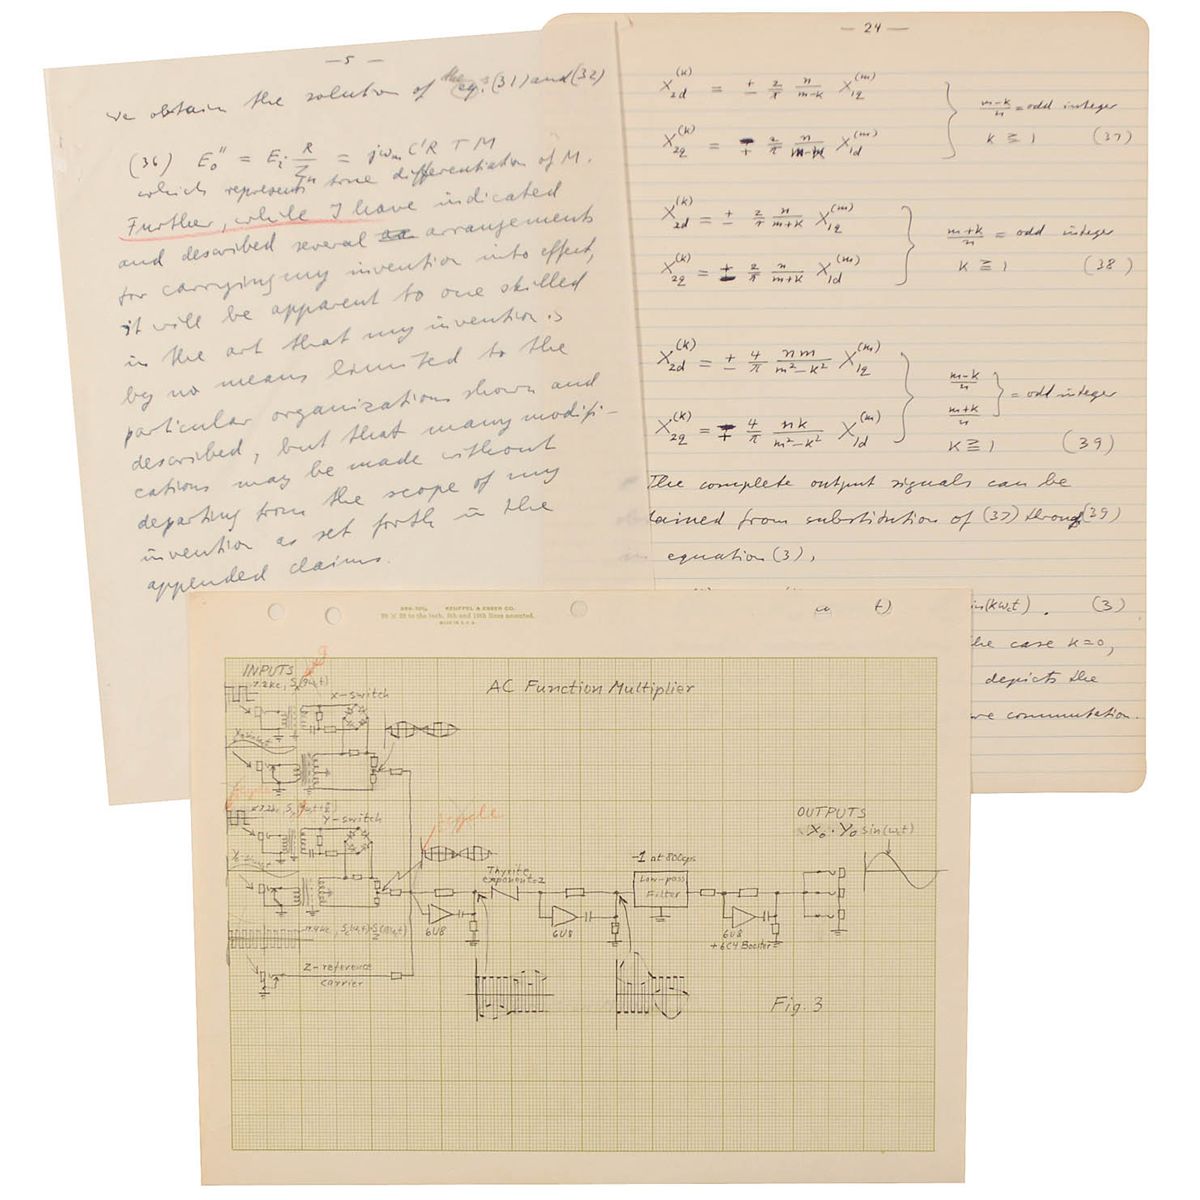 — 5 —
we obtain the solution of the eq. (31) and (32)
(36) E₀'' = Eᵢ · R/Zₘ = jωₘ C'R T M
which represents true differentiation of M.
Further, while I have indicated
and described several arrangements
for carrying my invention into effect,
it will be apparent to one skilled
in the art that my invention is
by no means limited to the
particular organizations shown and
described, but that many modifi-
cations may be made without
departing from the scope of my
invention as set forth in the
appended claims.
— 24 —
X₂d^(k) = ± 2/π n/(m-k) X₁q^(m)
X₂q^(k) = ∓ 2/π n/(m-k) X₁d^(m)
(m-k)/n = odd integer
k ≧ 1 (37)
X₂d^(k) = ± 2/π n/(m+k) X₁q^(m)
X₂q^(k) = ± 2/π n/(m+k) X₁d^(m)
(m+k)/n = odd integer
k ≧ 1 (38)
X₂d^(k) = ± 4/π nm/(m²-k²) X₁q^(m)
X₂q^(k) = ∓ 4/π nk/(m²-k²) X₁d^(m)
(m-k)/n
(m+k)/n } = odd integer
k ≧ 1 (39)
The complete output signals can be
tained from substitution of (37) through (39)
equation (3),
in(kω₀t). (3)
he case k=0,
depicts the
are commutation.
KEUFFEL & ESSER CO.
20 X 20 to the inch, 5th and 10th lines accented.
MADE IN U.S.A.
AC Function Multiplier
INPUTS
7.2kc,
x-switch
Y-switch
Z-reference
carrier
6U8
Thyrite
exponent=2
6U8
-1 at 800cps
Low-pass
Filter
6U8
+6C4 Booster
OUTPUTS
X₀ · Y₀ sin(ω₀t)
Fig. 3